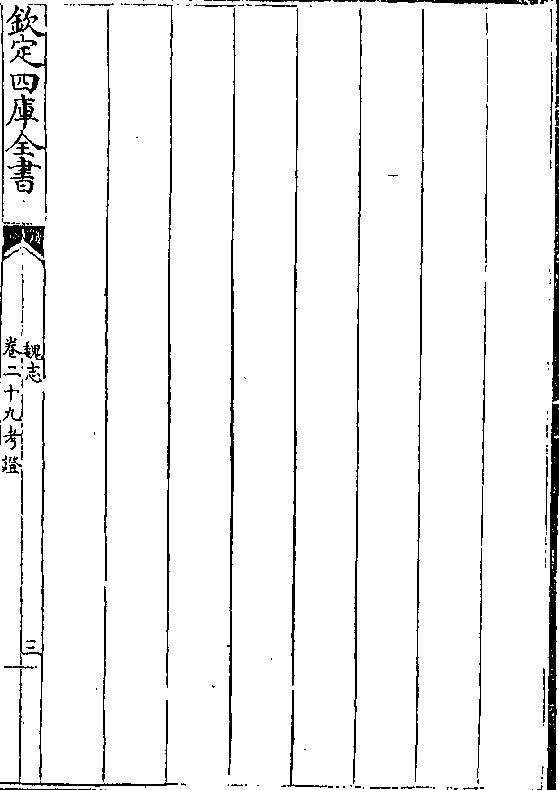 欽定四庫全書
魏志
卷二十九考證
三